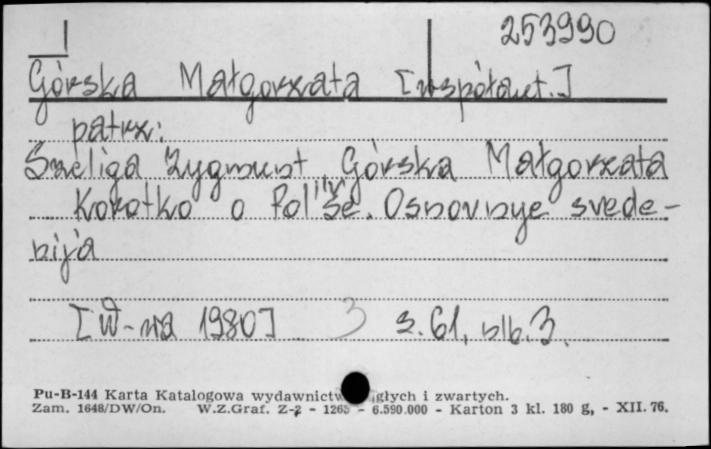 253990
Górska Małgorzata [współaut.]
patrz:
Szeliga Zygmunt, Górska Małgorzata
Korotko o Pol'še. Osnovnye svede-
nija
[W-wa 1980] 3 s. 61, nlb. 3.
Pu-B-144 Karta Katalogowa wydawnictw głych i zwartych.
Zam. 1648/DW/On. W.Z.Graf. Z-2 - 1265 - 6.590.000 - Karton 3 kl. 180 g, - XII. 76.